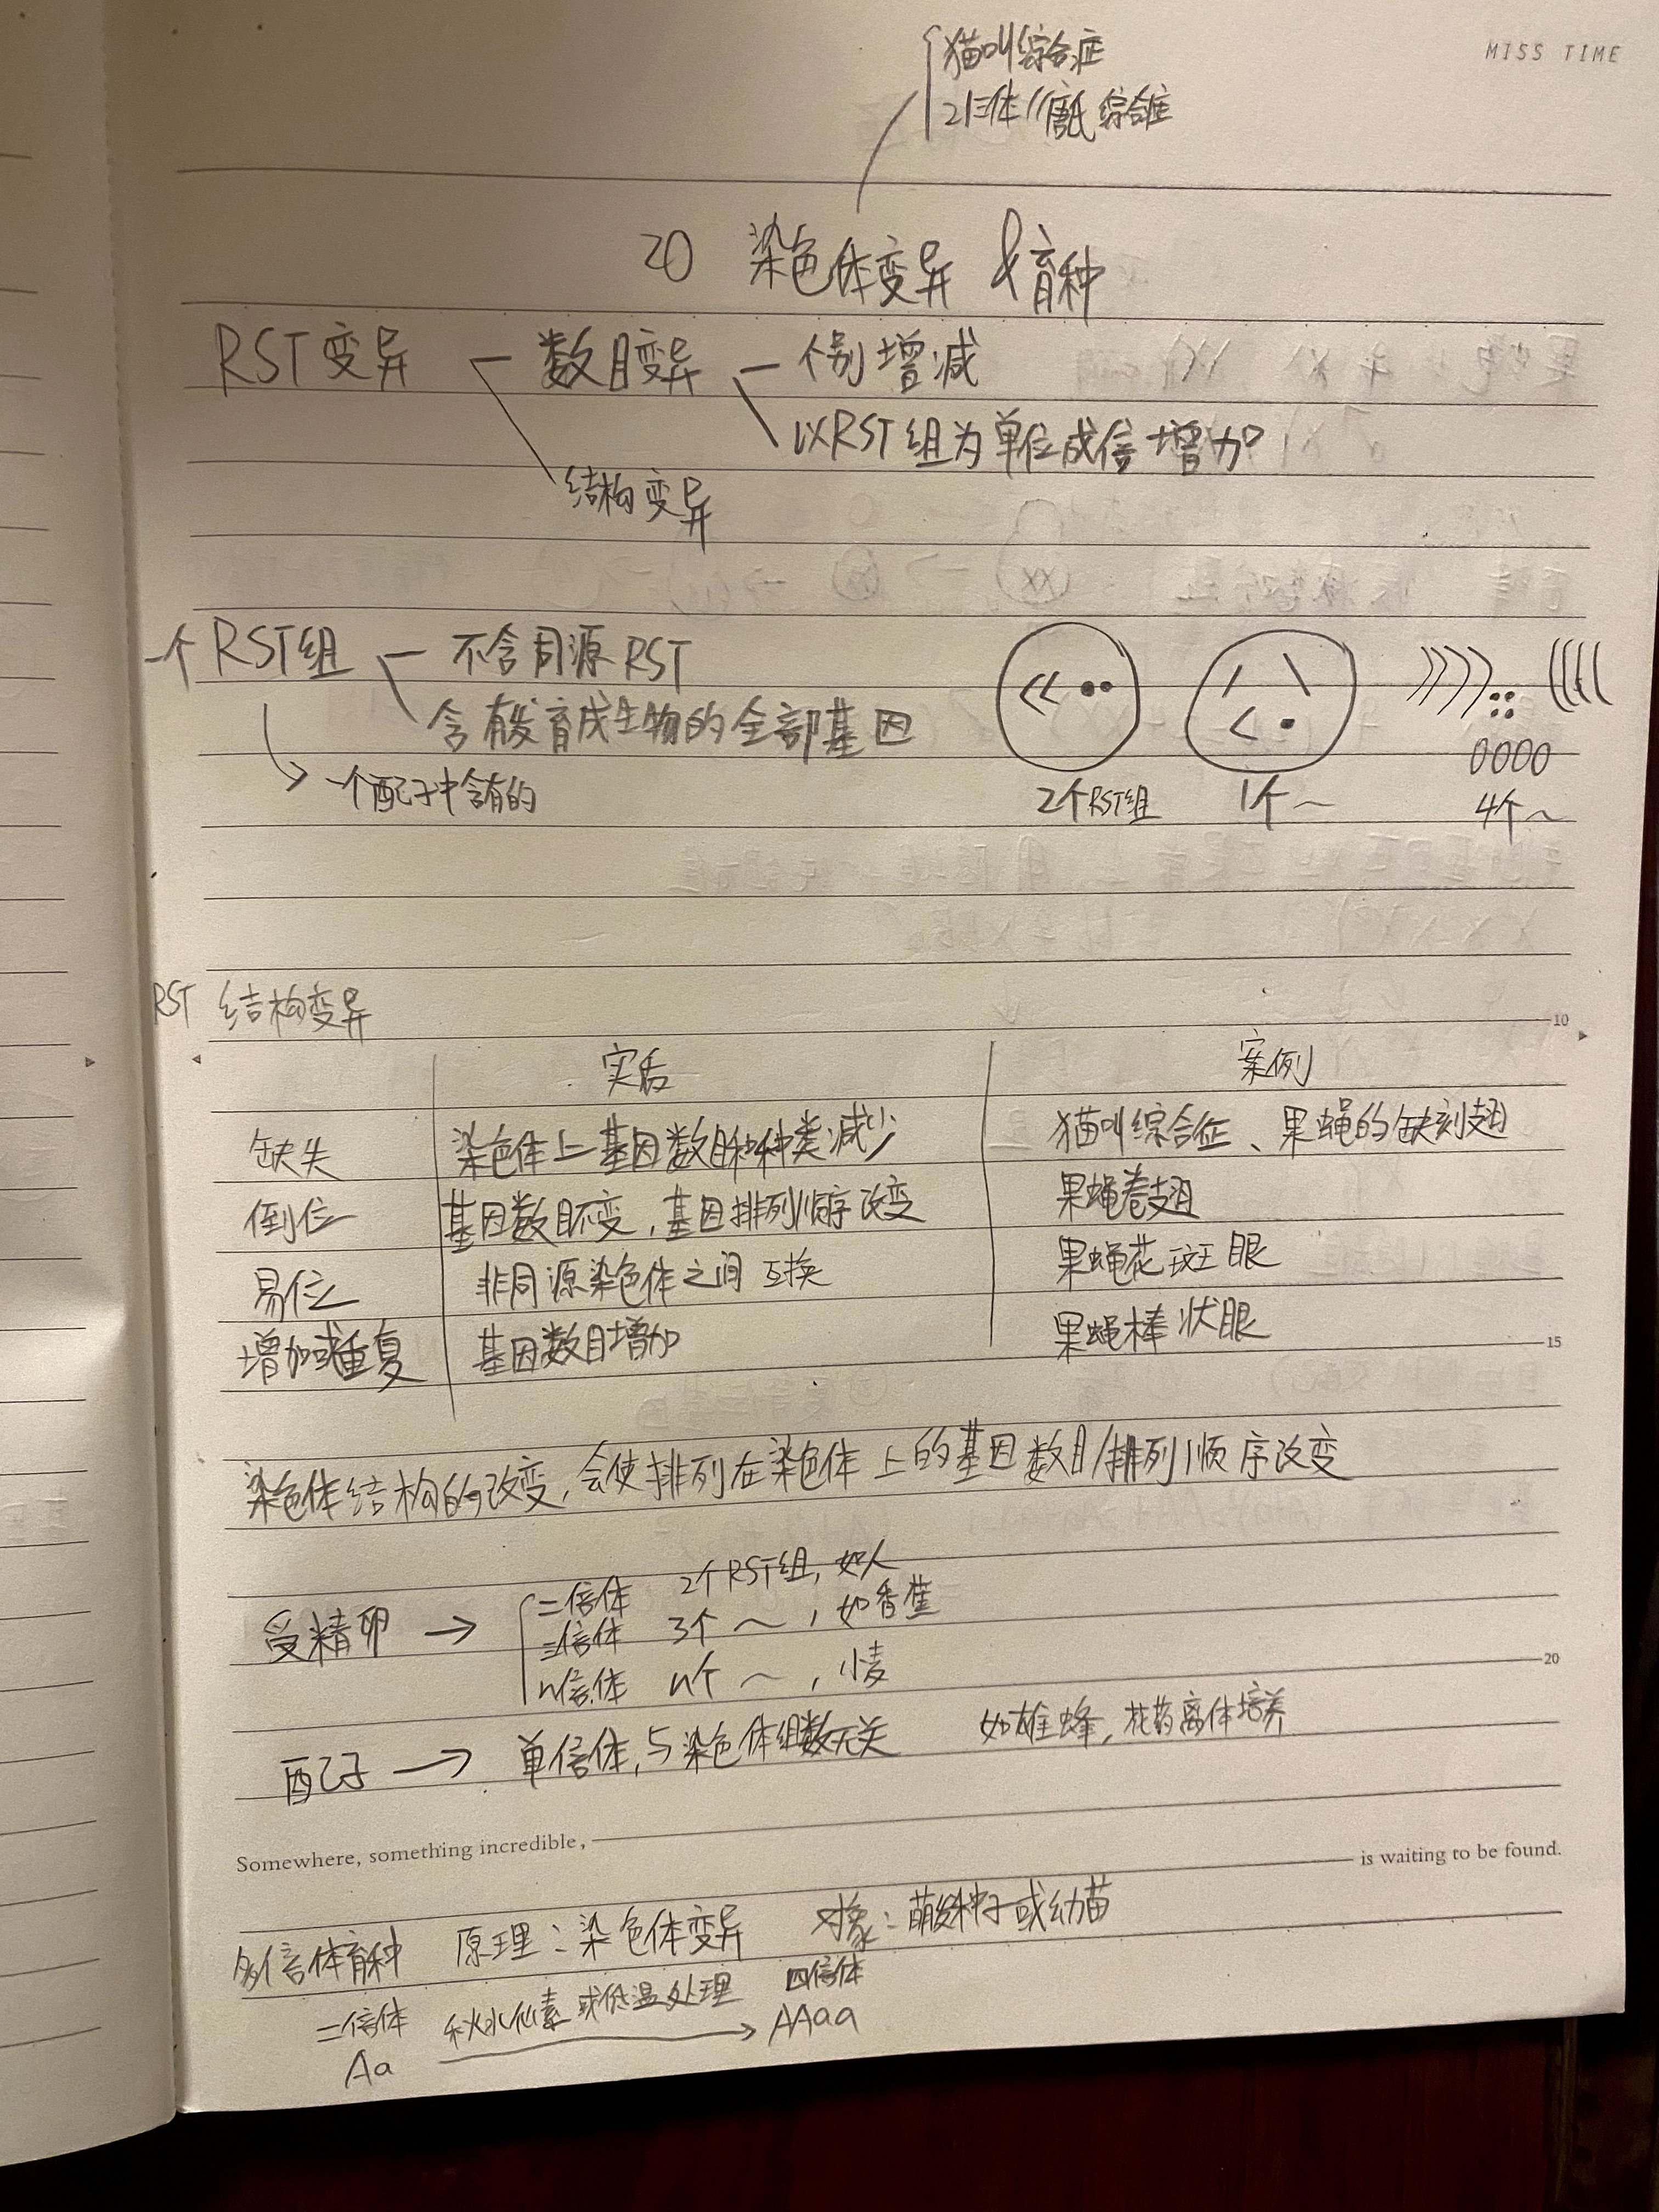 MISS TIME
猫叫综合症
21三体/愚型综合症
20 染色体变异 & 育种
RST变异 数目变异 个别增减
以RST组为单位成倍增加
结构变异
一个RST组 不含同源RST
含有发育成生物的全部基因
一个配子中含有的
2个RST组 1个~ 4个~
RST 结构变异
10
实质 案例
缺失 染色体上基因数目和种类减少 猫叫综合症、果蝇的缺刻翅
倒位 基因数目不变,基因排列顺序改变 果蝇卷翅
易位 非同源染色体之间互换 果蝇花斑眼
增加或重复 基因数目增加 果蝇棒状眼
15
染色体结构的改变,会使排列在染色体上的基因数目/排列顺序改变
受精卵 → 二倍体 2个RST组,如人
三倍体 3个~,如香蕉
n倍体 n个~,小麦
20
配子 → 单倍体,与染色体组数无关 如雄蜂,花药离体培养
Somewhere, something incredible, is waiting to be found.
多倍体育种 原理:染色体变异 对象:萌发种子或幼苗
二倍体 秋水仙素或低温处理 四倍体
Aa → AAaa